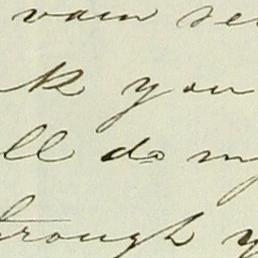 vain se
k you
ll do my
hrough y